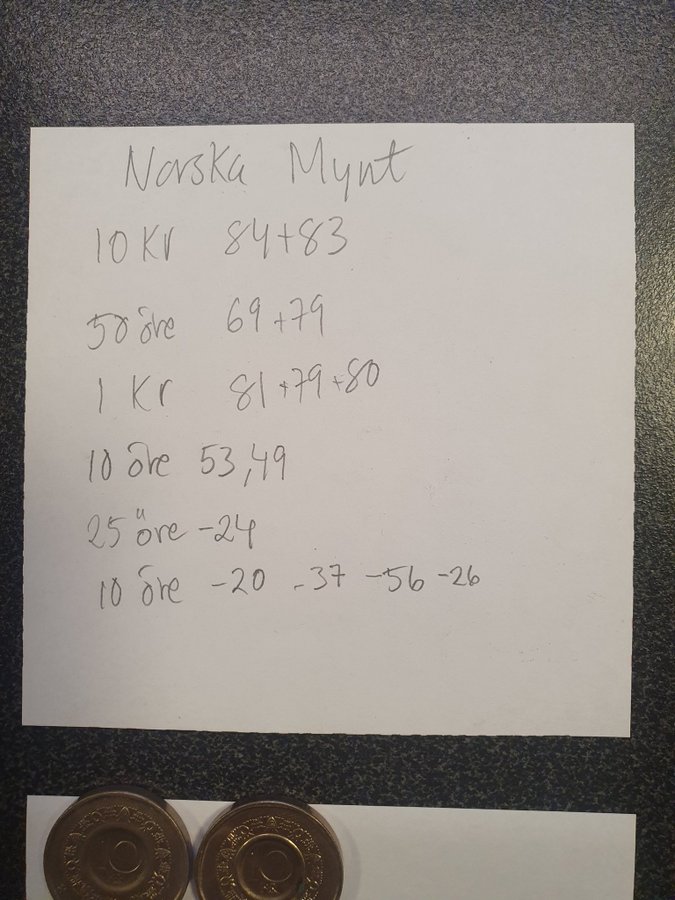 Norska Mynt
10 Kr 84+83
50 öre 69+79
1 Kr 81+79+80
10 öre 53,49
25 öre -24
10 öre -20 -37 -56 -26